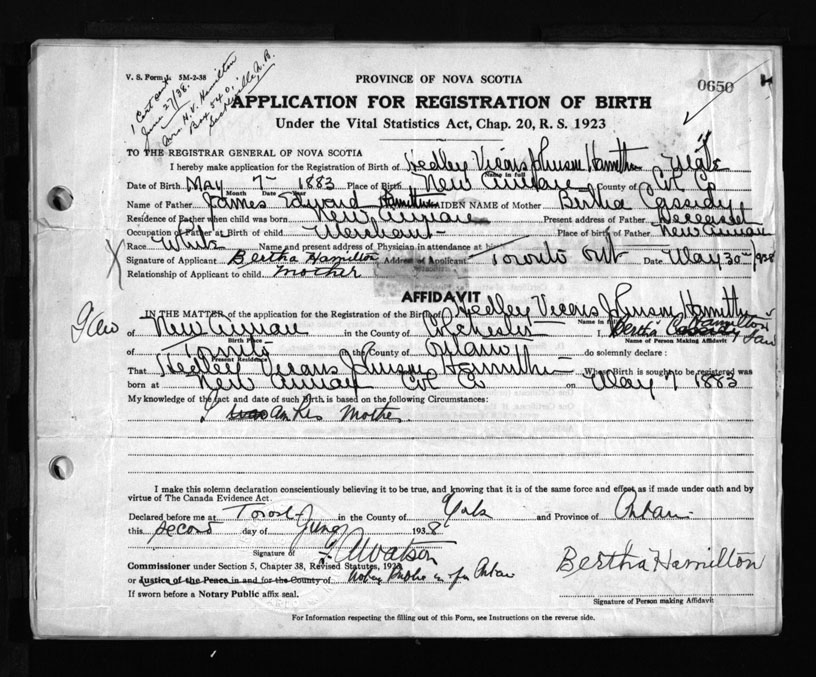 V. S. Form 1. 5M-2-38
1 Cert sent
June 27/38.
Mrs. H. V. Hamilton
Box 540,
Sackville, N. B.
PROVINCE OF NOVA SCOTIA
0650
APPLICATION FOR REGISTRATION OF BIRTH
Under the Vital Statistics Act, Chap. 20, R. S. 1923
TO THE REGISTRAR GENERAL OF NOVA SCOTIA
I hereby make application for the Registration of Birth of Hedley Vicars Johnson Hamilton Male
Name in full
Date of Birth May 7 1883 Place of Birth New Annan County of Col. Co
Month Date Year
Name of Father James Edward Hamilton MAIDEN NAME of Mother Bertha Cassidy
Residence of Father when child was born New Annan Present address of Father Deceased
Occupation of Father at Birth of child Merchant Place of birth of Father New Annan
Race White Name and present address of Physician in attendance at birth
X Signature of Applicant Bertha Hamilton Address of Applicant Toronto Ont Date May 30 1938
Relationship of Applicant to child mother
AFFIDAVIT
IN THE MATTER of the application for the Registration of the Birth of Hedley Vicars Johnson Hamilton
Name in full
of New Annan in the County of Colchester I, Bertha Cassidy Hamilton
Birth Place
Name of Person Making Affidavit
of Toronto in the County of Ontario do solemnly declare:
Present Residence
That Hedley Vicars Johnson Hamilton Whose Birth is sought to be registered was
born at New Annan Col Co on May 7 1883
My knowledge of the fact and date of such Birth is based on the following Circumstances:
I was am his Mother
I make this solemn declaration conscientiously believing it to be true, and knowing that it is of the same force and effect as if made under oath and by
virtue of The Canada Evidence Act.
Declared before me at Toronto in the County of York and Province of Ontario
this second day of June 1938
Signature of Watson
Commissioner under Section 5, Chapter 38, Revised Statutes, 1923
or Justice of the Peace in and for the County of Notary Public in & for Ontario
If sworn before a Notary Public affix seal.
Bertha Hamilton
Signature of Person making Affidavit
For Information respecting the filling out of this Form, see Instructions on the reverse side.